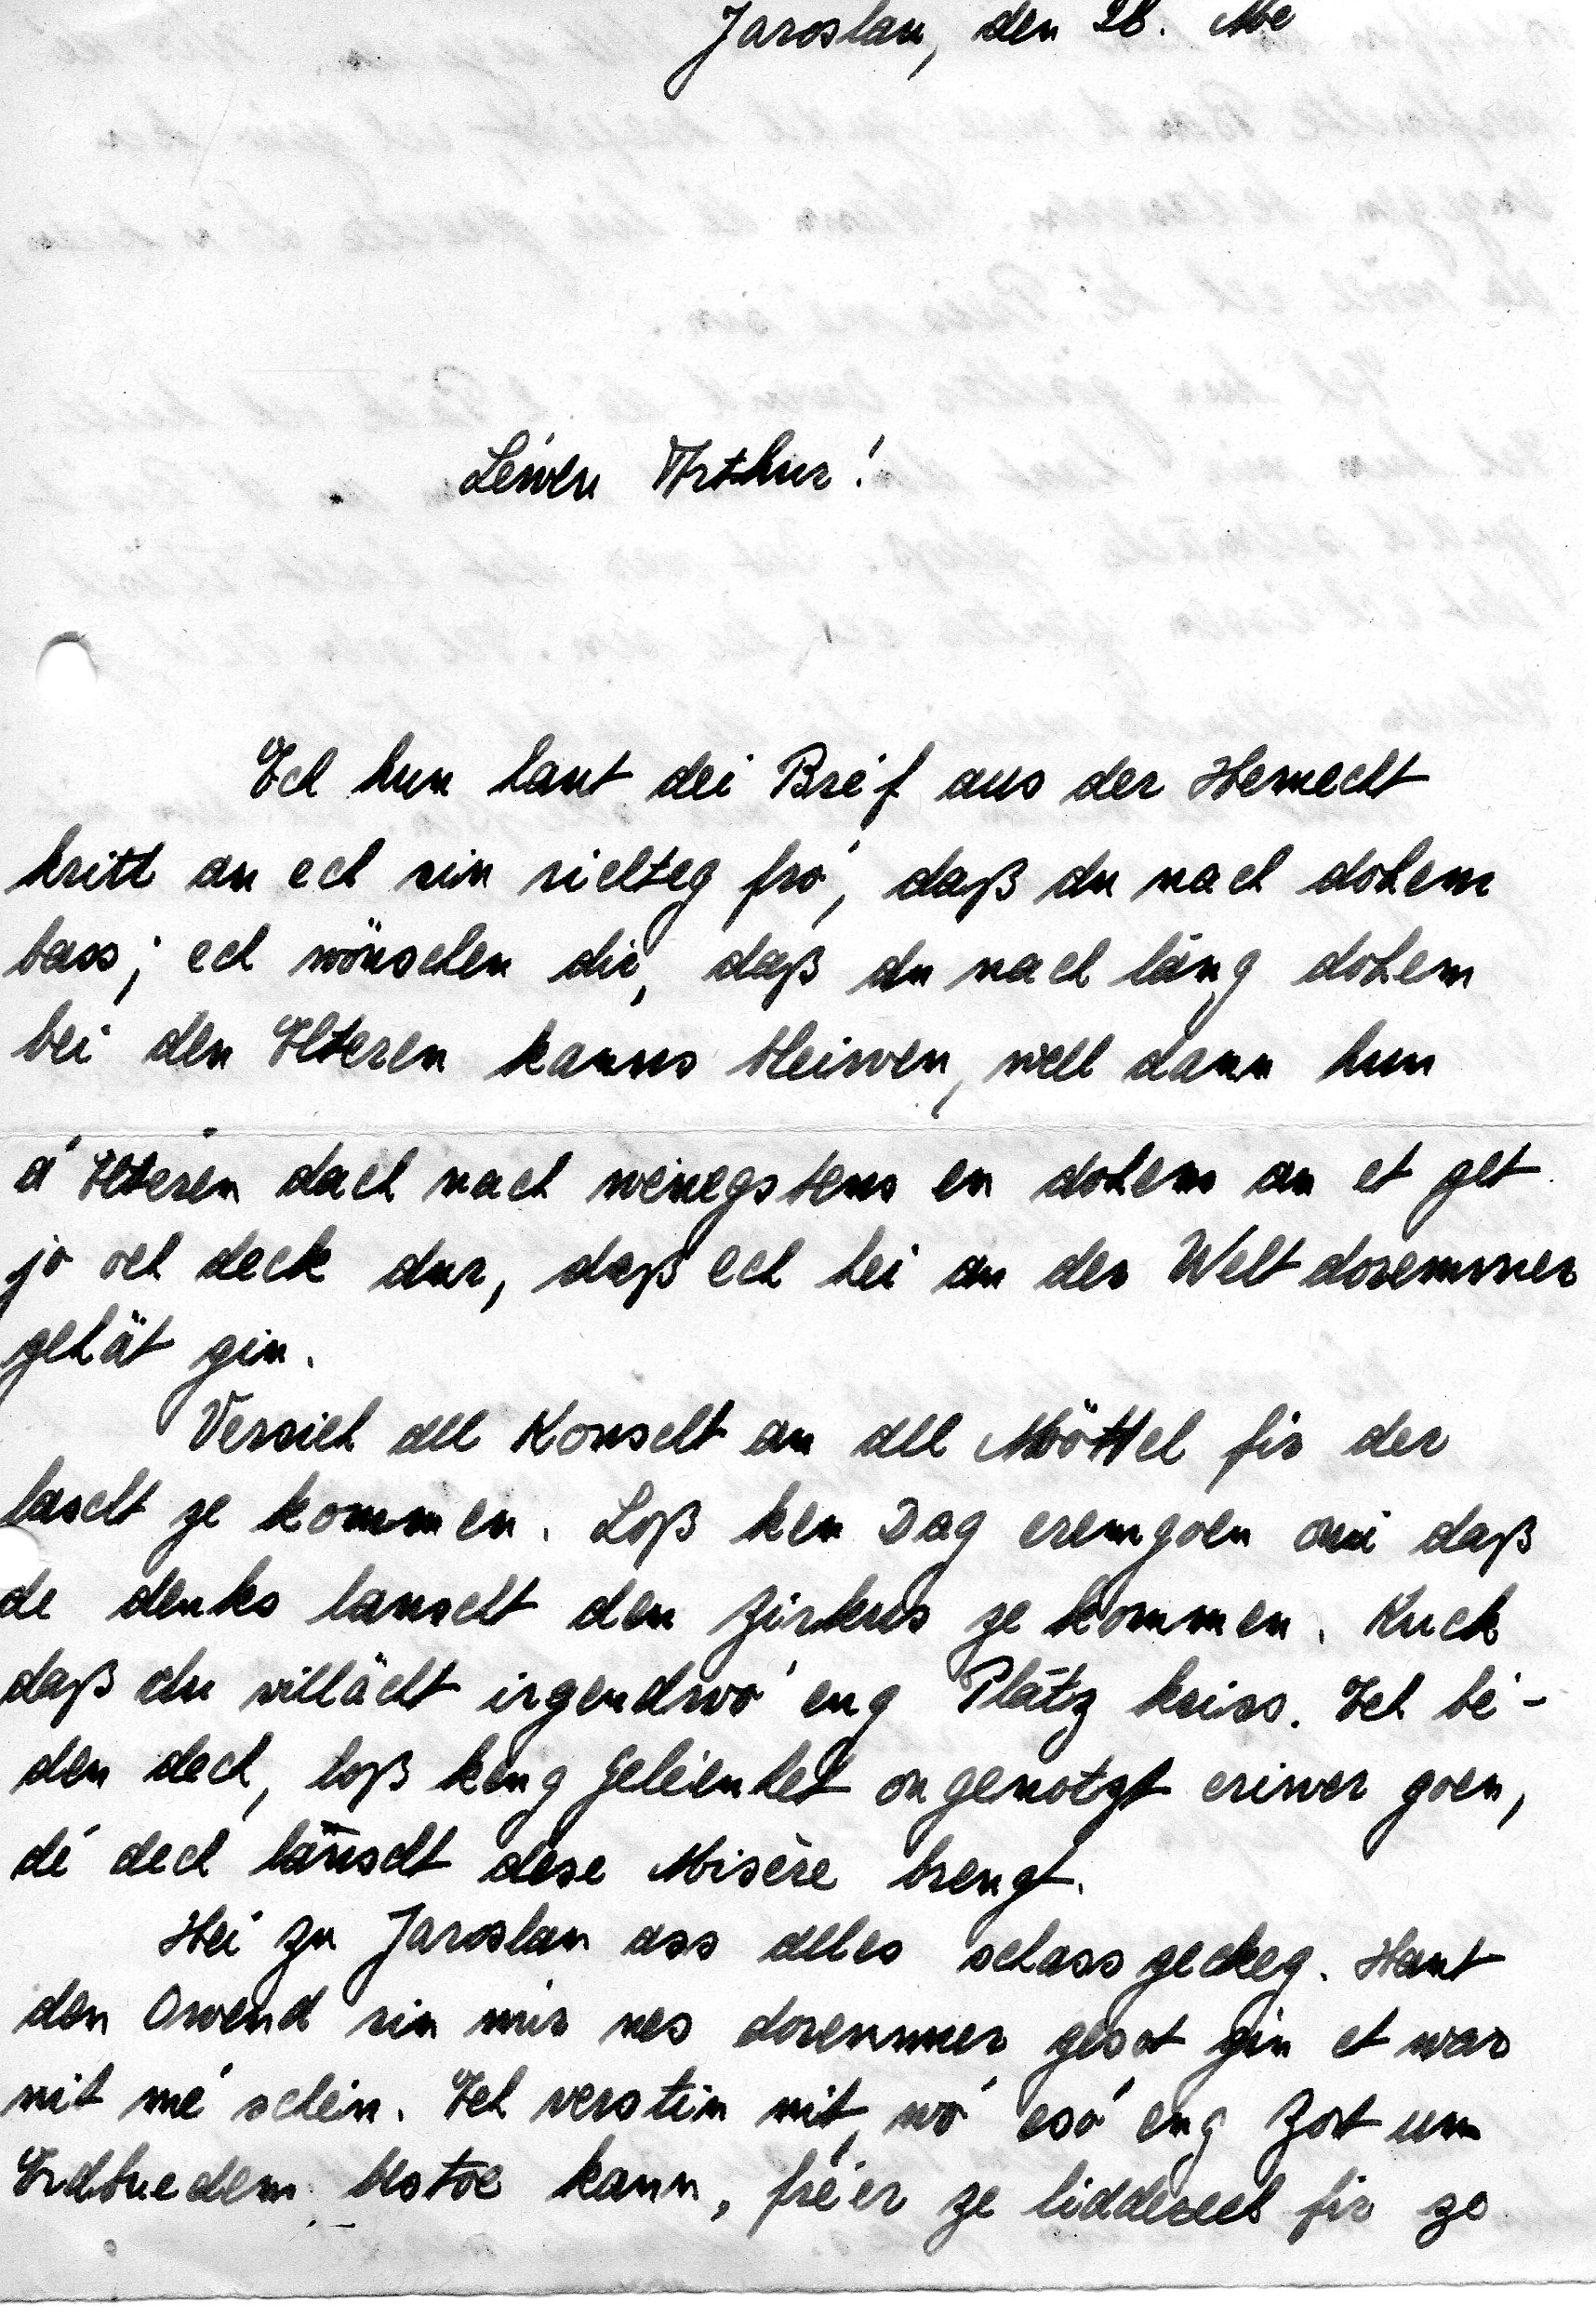 Jaroslau, den 28. Me
Léwen Arthur!
Ech hun haut dei Bréf aus der Hemecht
kritt an ech sin richteg fro', daß du nach dohem
bass; ech wönschen dir, daß du nach läng dohem
bei den Elteren kanns bleiwen, well dann hun
d'Elteren dach nach wénegstens en dohem an et get
jo och deck dur, daß ech hei an der Welt doremmer
gehät gin.
Versich all Konscht an all Möttel fir der
lascht ze kommen. Loß ken Dag eremgoen oni daß
de denks lanscht den Zirkus ze kommen. Kuck
daß du villächt irgendwó eng Plätz kriss. Ech bé-
den dech, loß keng Geléenhet ongenotzt eriwer goen,
dé dech länscht dese Misère brengt.
Hei zu Jaroslau ass alles schass geckeg. Haut
den Owend sin mir nes doremmer gesot gin et war
nit mé schéin. Ech verstin nit, wó esó eng Zort um
Erdbuedem bestoe kann, fréer ze lidderech fir ze